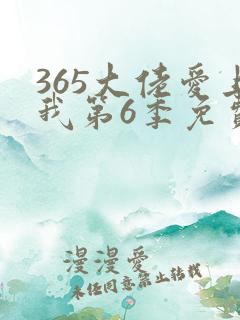 365大佬爱上
我第6季免费
漫漫爱
未经同意禁止转载